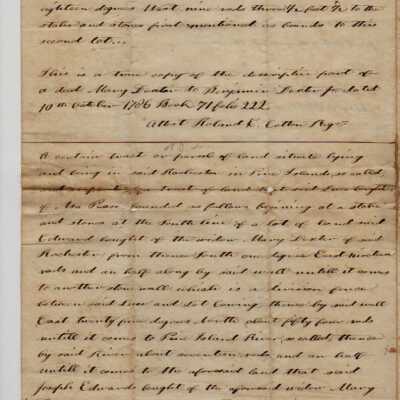 eighteen degrees West nine rods three feet to the
stake and stones first mentioned as bounds to this
second lot...
This is a true copy of the descriptive part of
a deed Mary Dexter to Benjamin Dexter Jr dated
10th October 1786 Book 71 folio 222
Attest Roland E. Cotton Regr
A certain tract or parcel of land situate lying
and being in said Rochester in Pine Islands so called
and is part of a tract of land that said Luce bought
of Mr Pease bounded as follows beginning at a stake
and stones at the South line of a lot of land said
Edward bought of the widow Mary Dexter of said
Rochester from thence South one degree East nineteen
rods and an half along by said wall untill it comes
to another stone wall which is a division fence
between said Luce and Lot thence by said wall
East twenty five degrees North about fifty four rods
untill it comes to Pine Island River so called, thence
by said River about seventeen rods and an half
untill it comes to the aforesaid land that said
Joseph Edwards bought of the aforesaid widow Mary